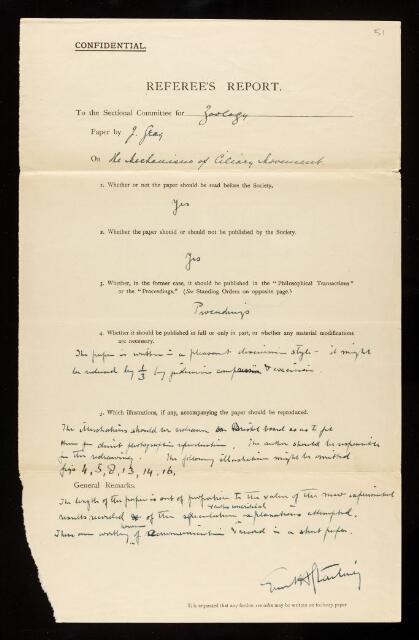 51
CONFIDENTIAL.
REFEREE'S REPORT.
To the Sectional Committee for Zoology
Paper by J. Gray
On The Mechanism of Ciliary Movement
1. Whether or not the paper should be read before the Society.
Yes
2. Whether the paper should or should not be published by the Society.
Yes
3. Whether, in the former case, it should be published in the "Philosophical Transactions"
or the "Proceedings." (See Standing Orders on opposite page.)
Proceedings
4. Whether it should be published in full or only in part, or whether any material modifications
are necessary.
The paper is written in a pleasant discursive style - it might
be reduced by 1/3 by judicious compression & excision.
5. Which illustrations, if any, accompanying the paper should be reproduced.
The illustrations should be redrawn on Bristol board so as to fit
them for direct photographic reproduction. The author should be responsible
for this redrawing. The following illustrations might be omitted
figs 4, 5, 8, 13, 14, 16.
General Remarks.
The length of the paper is out of proportion to the value of the new experimental
results recorded of the speculative explanations attempted.
These are worthy of & record in a short paper.
Ernest H Starling
It is requested that any further remarks may be written on foolscap paper